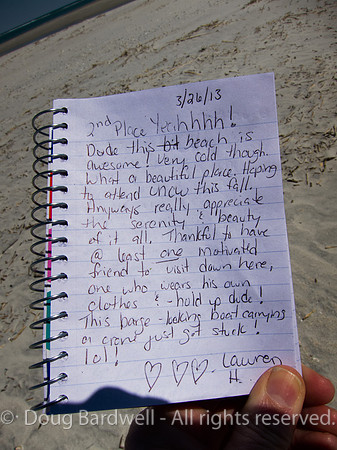 3/26/13
2nd Place Yeeihhhh!
Dude this beach is
awesome! Very cold though.
What a beautiful place. Hoping
to attend UNCW this fall.
Anyways really appreciate
the serenity & beauty
of it all. Thankful to have
@ least one motivated
friend to visit down here,
one who wears his own
clothes & - hold up dude!
This barge-looking boat carrying
a crane just got stuck!
lol!
♡ ♡♡. Lauren
H.
© Doug Bardwell - All rights reserved.